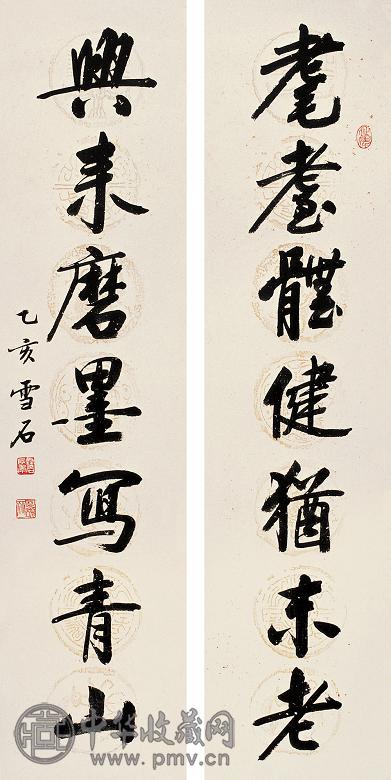 耄耋體健猶未老
興来磨墨寫青山
乙亥雪石
中华收藏网
www.pmv.cn